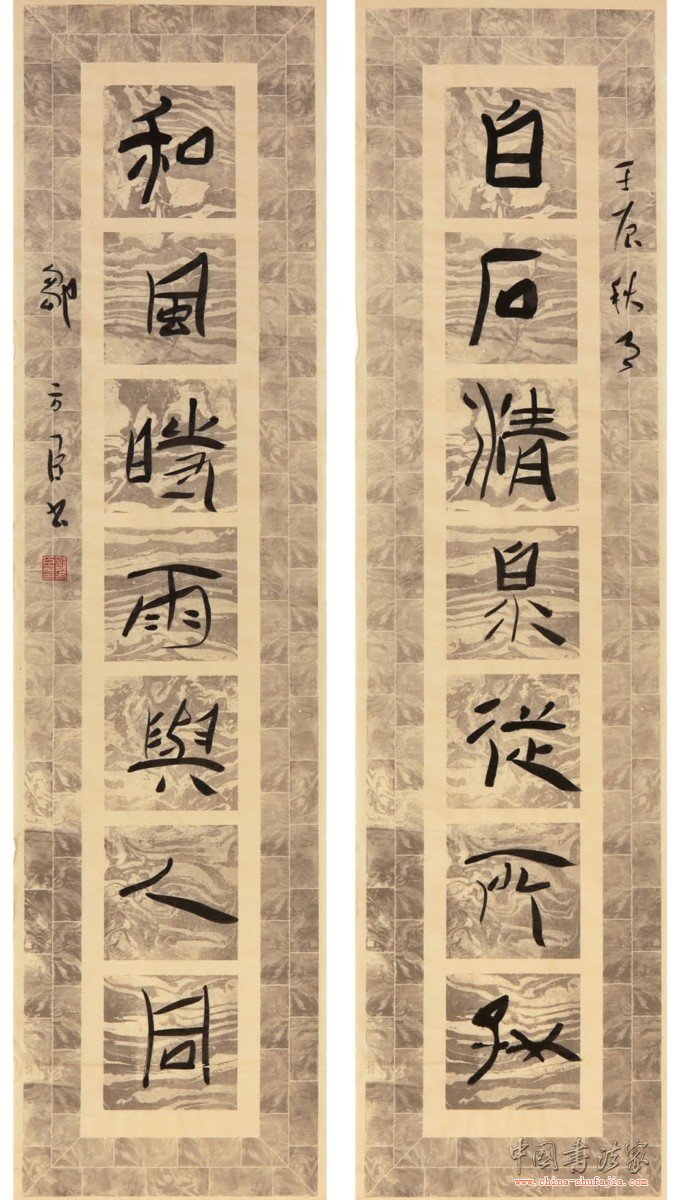 壬辰秋月
白石清泉從所好
和風時雨與人同
鄒方臣书
中國書法家
www.china-shufajia.com